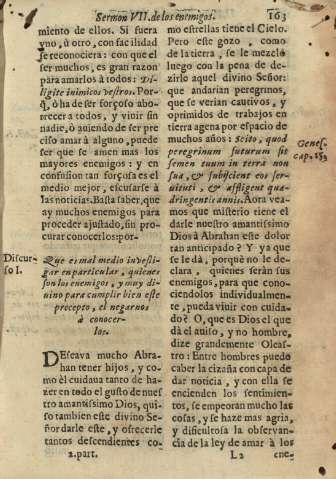 Sermon VII. de los enemigos. 163
miento de ellos. Si fuera
vno, ù otro, con facilidad
se reconociera: con que el
ser muchos, es gran razon
para amarlos à todos: Di-
ligite inimicos vestros. Por-
q̃, ò ha de ser forçoso abo-
rrecer a todos, y viuir sin
nadie, ò auiendo de ser pre
ciso amar à alguno, puede
ser que se amen mas los
mayores enemigos: y en
confusion tan forçosa es el
medio mejor, escusarse à
las noticias. Basta saber, que
ay muchos enemigos para
proceder ajustado, sin pro-
curar conocerlos: por-
Discur-
so I.
Que es mal medio inuesti-
gar en particular, quienes
son los enemigos, y muy di-
uino para cumplir bien este
precepto, el negarnos
à conocer-
los.
DEseava mucho Abra-
han tener hijos, y co-
mo èl cuidaua tanto de ha-
zer en todo el gusto de nues
tro amantissimo Dios, qui-
so tambien este divino Se-
ñor darle este, y ofrecerle
tantos descendientes co-
2. part.
mo estrellas tiene el Cielo.
Pero este gozo, como
de la tierra, se le mezclò
luego con la pena de de-
zirle aquel divino Señor:
que andarian peregrinos,
que se verian cautivos, y
oprimidos de trabajos en
tierra agena por espacio de
muchos años: Scito, quod
peregrinum futurum sit
semen tuum in terra non
sua, & subijcient eos ser-
uituti, & affligent qua-
dringentis annis. Aora vea-
mos que misterio tiene el
darle nuestro amantissimo
Dios à Abrahan este dolor
tan anticipado? Y ya que
se le dà, porquè no le de-
clara, quienes seràn sus
enemigos, para que cono-
ciendolos individualmen-
te, pueda viuir con cuida-
do? O, que es Dios el que
dà el auiso, y no hombre,
dize grandemente Oleas-
tro: Entre hombres puedo
caber la cizaña con capa de
dar noticia, y con ella se
encienden los sentimien-
tos, se empeoran mucho las
cosas, y se haze mas agria,
y dificultosa la observan-
cia de la ley de amar à los
L2 ene-
Genes.
cap. 15.